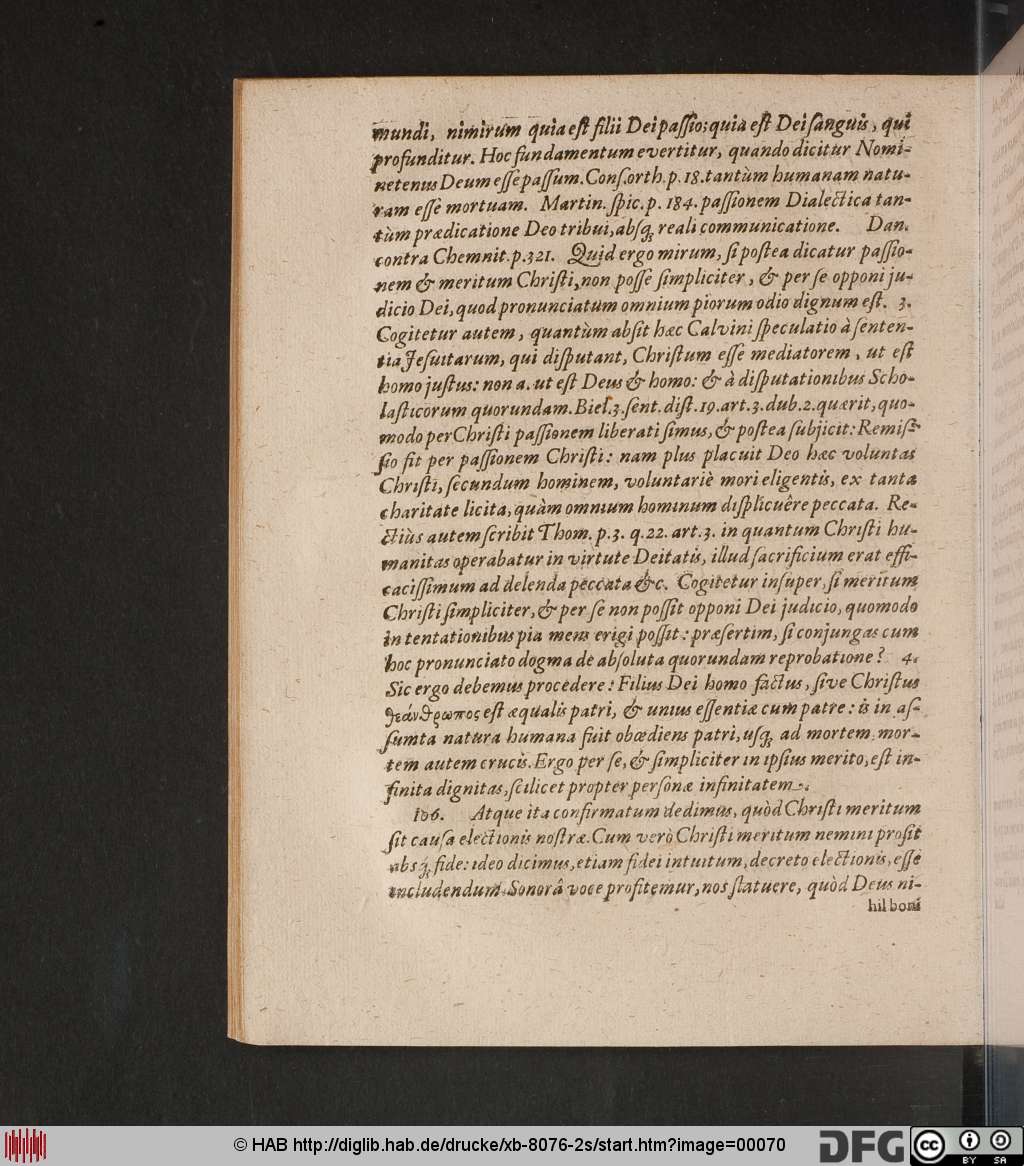 mundi, nimirum quia eſt filii Dei paſſio; quia eſt Dei ſanguis, qui
profunditur. Hoc fundamentum evertitur, quando dicitur Nomi-
netenus Deum eſſe paſſum. Conſ. orth. p. 18. tantùm humanam natu-
ram eſſe mortuam. Martin. ſpic. p. 184. paſſionem Dialectica tan-
tùm prædicatione Deo tribui, abſq; reali communicatione. Dan.
contra Chemnit. p. 321. Quid ergo mirum, ſi poſtea dicatur paſſio-
nem & meritum Chriſti, non poſſe ſimpliciter, & per ſe opponi ju-
dicio Dei, quod pronunciatum omnium piorum odio dignum eſt. 3.
Cogitetur autem, quantùm abſit hæc Calvini ſpeculatio à ſenten-
tia Jeſuitarum, qui diſputant, Chriſtum eſſe mediatorem, ut eſt
homo juſtus: non a. ut eſt Deus & homo: & à diſputationibus Scho-
laſticorum quorundam. Biel. 3. ſent. diſt. 19. art. 3. dub. 2. quærit, quo-
modo per Chriſti paſſionem liberati ſimus, & poſtea ſubjicit: Remiſ-
ſio fit per paſſionem Chriſti: nam plus placuit Deo hæc voluntas
Chriſti, ſecundum hominem, voluntariè mori eligentis, ex tanta
charitate licita, quàm omnium hominum diſplicuêre peccata. Re-
ctiùs autem ſcribit Thom. p. 3. q. 22. art. 3. in quantum Chriſti hu-
manitas operabatur in virtute Deitatis, illud ſacrificium erat effi-
caciſſimum ad delenda peccata &c. Cogitetur inſuper, ſi meritum
Chriſti ſimpliciter, & per ſe non poſſit opponi Dei judicio, quomodo
in tentationibus pia mens erigi poſſit: præſertim, ſi conjungas cum
hoc pronunciato dogma de abſoluta quorundam reprobatione? 4.
Sic ergo debemus procedere: Filius Dei homo factus, ſive Chriſtus
θεάνθρωπος eſt æqualis patri, & unius eſſentiæ cum patre: is in aſ-
ſumta natura humana fuit obœdiens patri, uſq; ad mortem, mor-
tem autem crucis. Ergo per ſe, & ſimpliciter in ipſius merito, eſt in-
finita dignitas, ſcilicet propter perſonæ infinitatem.
106. Atque ita confirmatum dedimus, quòd Chriſti meritum
ſit cauſa electionis noſtræ. Cum verò Chriſti meritum nemini proſit
abſq; fide: ideo dicimus, etiam fidei intuitum, decreto electionis, eſſe
includendum. Sonorâ voce profitemur, nos ſtatuere, quòd Deus ni-
hil boni
© HAB http://diglib.hab.de/drucke/xb-8076-2s/start.htm?image=00070
DFG
cc BY SA